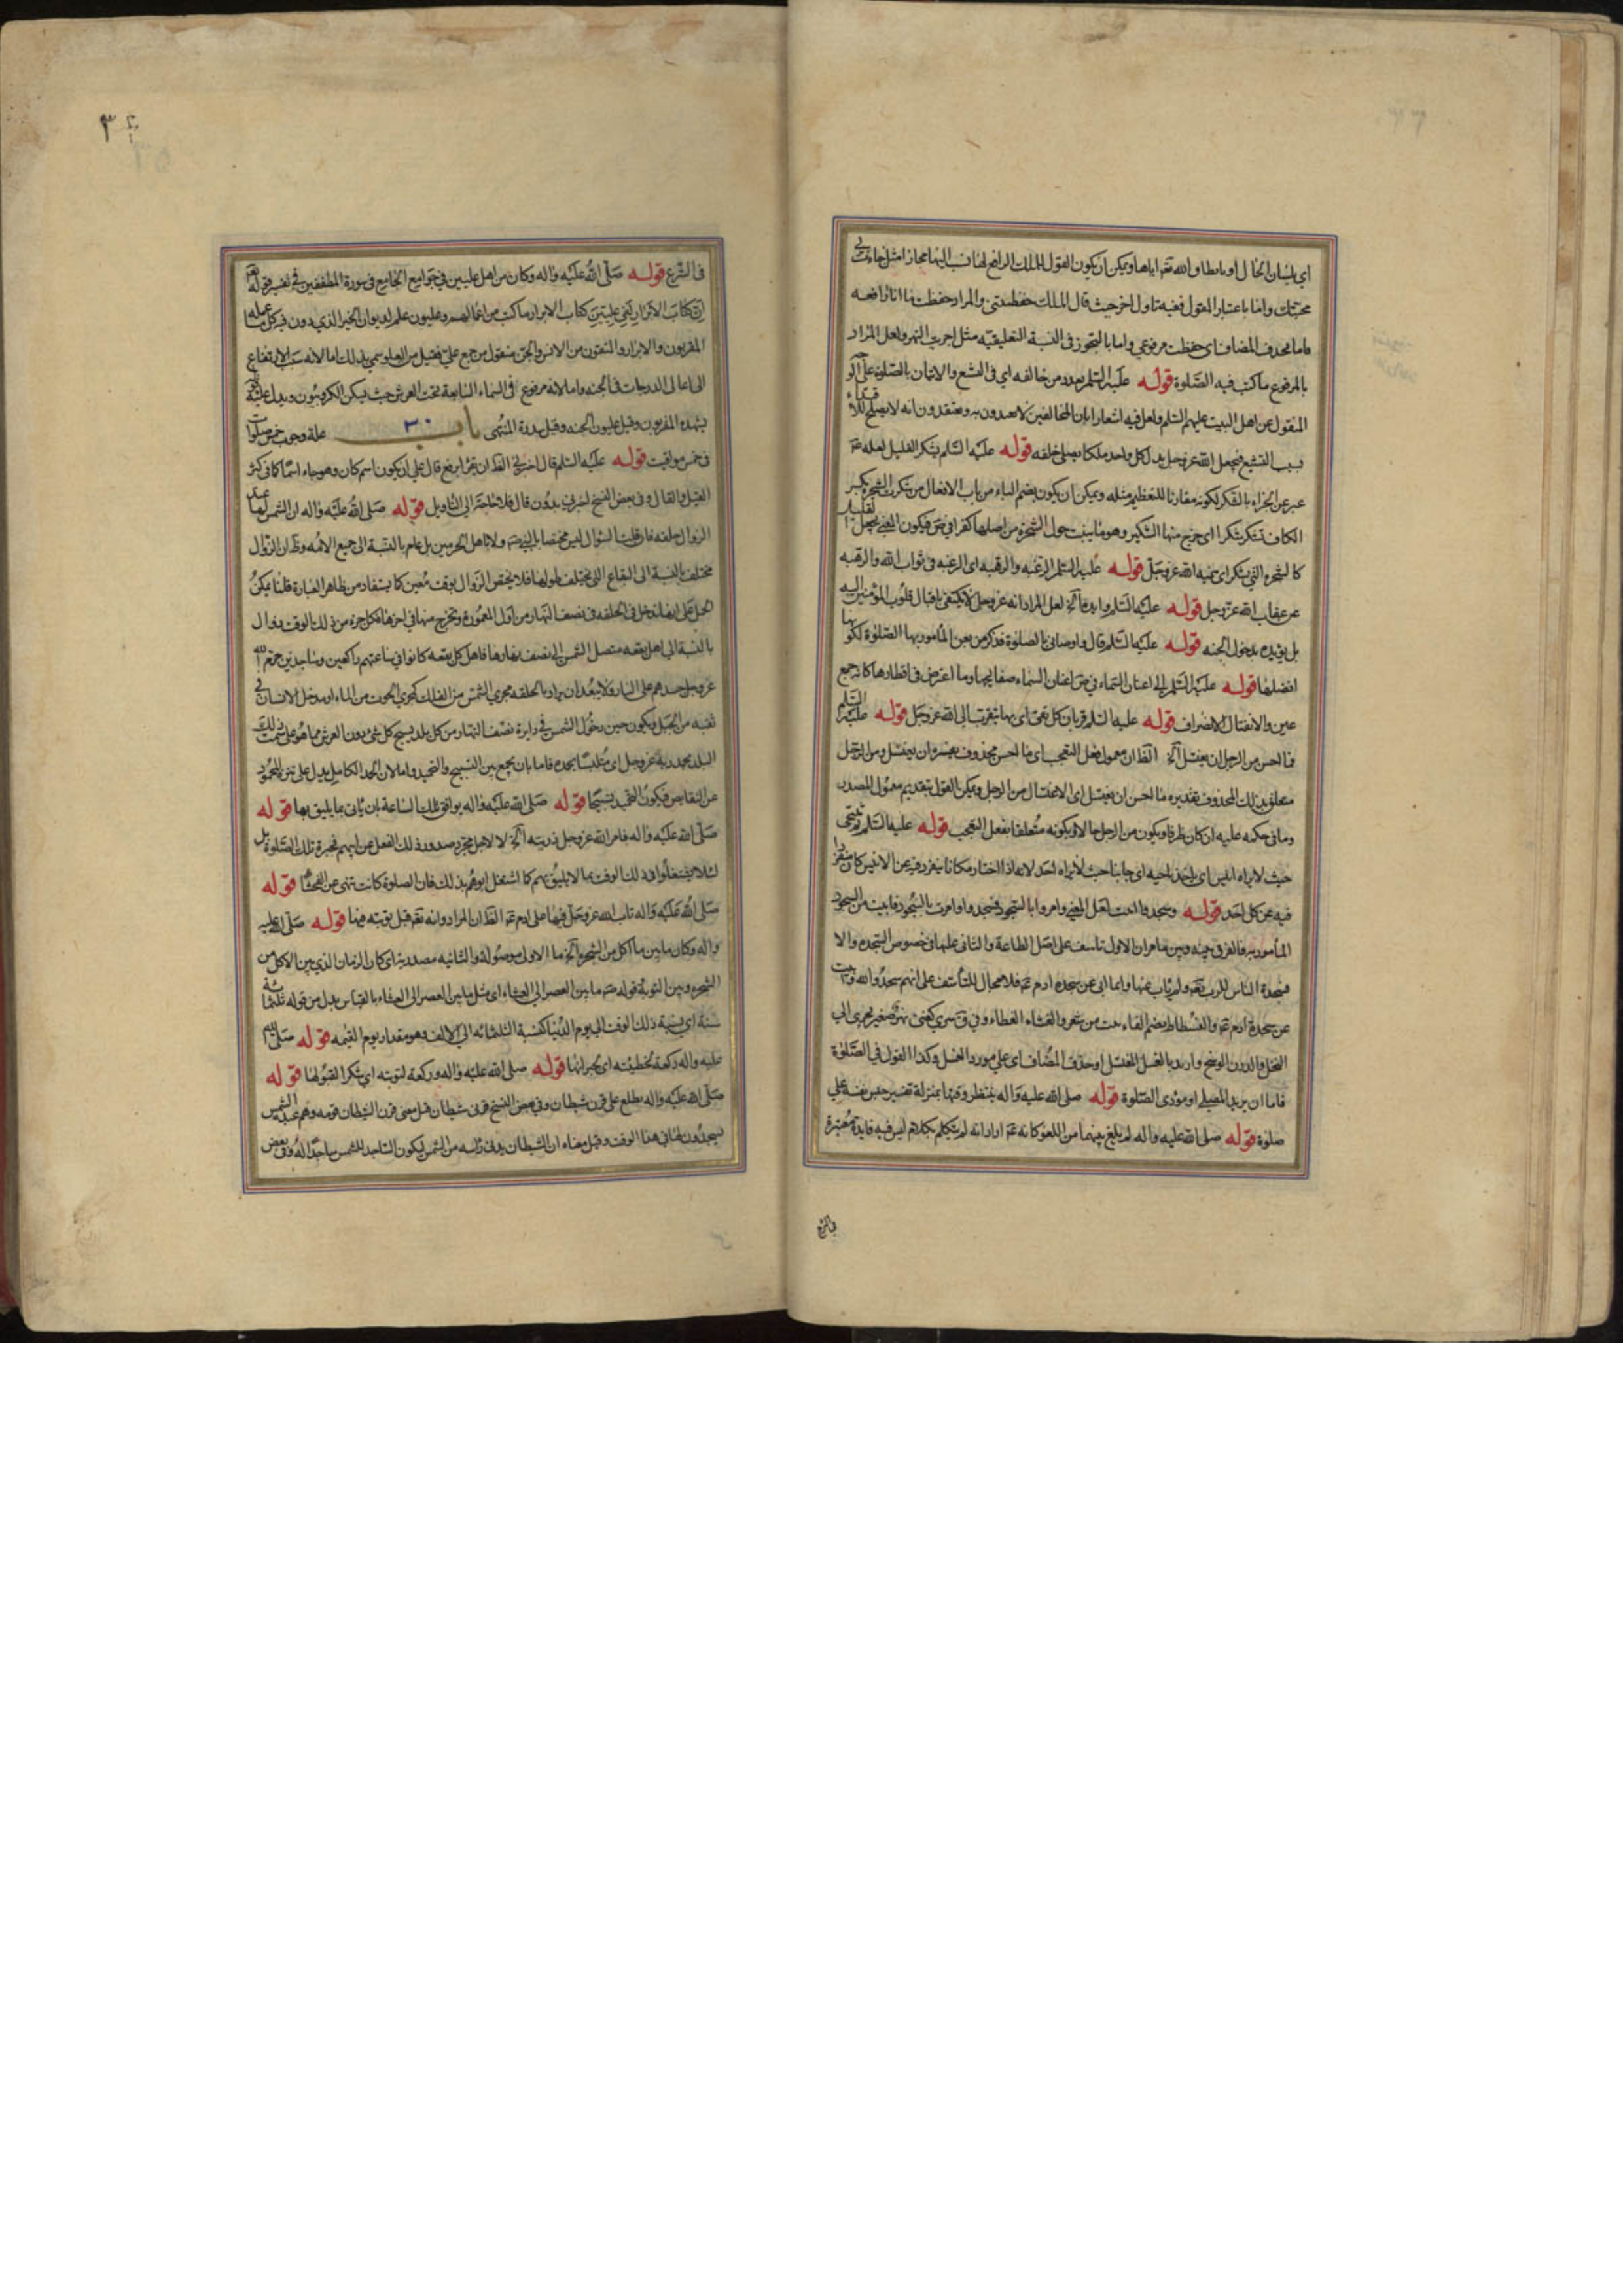 اي بلسان الحال او بانطاق الله تعم اياها ويمكن ان يكون القول للملك الرافع لها فنسب اليها مجازا مثل جاءت بي
محبتك واما باعتبار المقول ففيه تاول اخر حيث قال الملك حفظتني والمراد حفظت ما انا رافعه
فاما بحذف المضاف اي حفظت مرفوعي واما بالتجوز في النسبة التعليقيه مثل اجريت النهر ولعل المراد
بالمرفوع ما كتب فيه الصلوة قوله عليه السلم بعدد من خالفه اي في التشيع والاتيان بالصلوة على
المنقول عن اهل البيت عليهم السلم ولعل فيه اشعارا بان المخالفين لا يعتدون به ويعتقدون انه لا يصلح
بسبب التشيع فيجعل الله عز وجل بدل كل واحد ملكا يصلي خلفه قوله عليه السلم يشكر القليل لعله عم
عبر عن الجزاء بالشكر لكونه مقارنا للتعظيم مثله ويمكن ان يكون بضم الياء من باب الافعال من شكرت الشجره بكسر
الكاف تشكر شكرا اي خرج منها الشكير وهو ما ينبت حول الشجره من اصلها كذا في ص فيكون المعنى يجعل القليل
كالشجره التي يشكر اي ينميه الله عز وجل قوله عليه السلم الرغبه والرقبه اي الرغبه في ثواب الله والرقبه
عن عقاب الله عز وجل قوله عليه السلم وايده آلخ لعل المراد انه عز وجل لا يكتفي باقبال قلوب المؤمنين اليه
بل يؤيده بدخول الجنه قوله عليه السلم قال واوصاني بالصلوة فذكر من بعض المأمور بها الصلوة لكونها
افضلها قوله عليه السلم الى اعنان السماء في ص اعنان السماء صفايحها وما اعترض في اقطارها كانه جمع
عين والانفتال الانصراف قوله عليه السلم قربان كل تقي اي بها يتقرب الى الله عز وجل قوله عليه السلم
فما احسن من الرجل ان يغتسل آلخ الظ ان معمول فعل التعجب اي ما احسن محذوف يفسره ان يغتسل ومن الرجل
متعلق بذلك المحذوف تقديره ما احسن ان يغتسل اي الاغتسال من الرجل ويمكن القول بتقديم معمول المصدر
وما في حكمه عليه ان كان ظرفا ويكون من الرجل حالا ويكونه متعلقا بفعل التعجب قوله عليه السلم ثم يتنحى
حيث لا يراه انيس اي ياخذ ناحيه اي جانبا حيث لا يراه احد لانه اذا اختار مكانا ينفرد فيه عن الانيس كان منفردا
فيه عن كل احد قوله وسجد وابيت لعل المعنى وامروا بالسجود فسجدوا وامرت بالسجود فابيت من السجود
المأمور به فالفرق بينه وبين ما مر ان الاول تاسف على اصل الطاعة والثاني عليها في خصوص السجده والا
فسجدة الناس للرب تعم ولم ياب عنها وانما ابى عن سجدة ادم عم فلا مجال للتأسف على انهم سجدوا لله وابيت
عن سجدة ادم عم والفسطاط بضم الفاء بيت من شعر والغشاء الغطاء وفي ق سري كغني نهر صغير يجري الى
النخل والدرن الوسخ واريد بالغسل المغتسل او حذف المضاف اي على مورد الغسل وكذا القول في الصلوة
فاما ان يريد المصلي او مؤدي الصلوة قوله صلى الله عليه واله ينتظر وقتها بمنزلة تفسير حبس نفسه على
صلوة قوله صلى الله عليه واله لم يلغ بينهما من اللغو كانه عم اراد انه لم يتكلم بكلام ليس فيه فايدة معتبرة
في الشرع
في الشرع قوله صلى الله عليه واله وكان من اهل عليين في جوامع الجامع في سورة المطففين في تفسير قوله تعم
ان كتاب الابرار لفي عليين كتاب الابرار ما كتب من اعمالهم وعليون علم لديوان الخير الذي دون فيه كل ما عمله
المقربون والابرار والمتقون من الانس والجن منقول من جمع علي فعيل من العلو سمي بذلك اما لانه سبب الارتفاع
الى اعالى الدرجات في الجنه واما لانه مرفوع في السماء السابعة تحت العرش حيث يسكن الكروبيون ويدل عليه قوله
يشهده المقربون وقيل عليون الجنه وقيل سدرة المنتهى باب ٣٠ علة وجوب خمس صلوات
في خمس مواقيت قوله عليه السلم قال اخبرني الظ ان يقرا برفع قال على ان يكون اسم كان وهو جاء اسما كما في كثر
القيل والقال وفي بعض النسخ اخبرني بدون قال فلا حاجة الى التاويل قوله صلى الله عليه واله ان الشمس لها عند
الزوال حلقه فان قلت السؤال ليس مختصا بالنبي صم ولا باهل الحرمين بل عام بالنسبة الى جميع الامه وظ ان الزوال
مختلف بالنسبة الى البقاع التي يختلف طولها فلا يختص الزوال بوقت معين كما يستفاد من ظاهر العبارة قلنا يمكن
الحمل على انها تدخل في الحلقه في نصف النهار من اول المعمورة وتخرج منها في اخرها فكل جزء من ذلك الوقت زوال
بالنسبة الى اهل بقعه متصل الشمس الى نصف نهارها فاهل كل بقعه كانوا في ساعتهم راكعين وساجدين حرم الله
عز وجل جسدهم على النار ولا يبعد ان يراد بالحلقه مجرى الشمس من الفلك كمجرى الحوت من الماء او مدخل الانسان في
ثقبه من الجبل ويكون حين دخول الشمس في دايرة نصف النهار من كل بلد يسبح كل شيء دون العرش مما هو على سمت ذلك
البلد بحمد ربه عز وجل اي متلبسا بحمده فاما بان يجمع بين التسبيح والتحميد واما لان الحمد الكامل يدل على تنزه المحمود
عن النقايص فيكون التحميد تسبيحا قوله صلى الله عليه واله يوافق تلك الساعة بان ياتي بما يليق بها قوله
صلى الله عليه واله فامر الله عز وجل ذريته آلخ لا لاجل مجرد صدور ذلك الفعل عن ابيهم فجرة تلك الصلوة بل
لئلا يشتغلوا في ذلك الوقت بما لا يليق بهم كما اشتغل ابوهم بذلك فان الصلوة كانت تنهى عن الفحشاء قوله
صلى الله عليه واله تاب الله عز وجل فيها على ادم عم الظ ان المراد وانه تعم قبل توبته فيها قوله صلى الله عليه
واله وكان ما بين ما اكل من الشجره آلخ ما الاولى موصولة والثانيه مصدريه اي كان الزمان الذي بين الاكل من
الشجره وبين التوبة قوله صم ما بين العصر الى العشاء اي مثل ما بين العصر الى العشاء بالقياس بدل من قوله ثلثمائة
سنة اي نسبة ذلك الوقت الى يوم الدنيا كنسبة الثلثمائه الى الالف وهو مقدار يوم القيمه قوله صلى الله
عليه واله ركعة لخطيئته اي لجبرانها قوله صلى الله عليه واله وركعة لتوبته اي شكرا لقبولها قوله
صلى الله عليه واله يطلع على قرن شيطان وفي بعض النسخ قرني شيطان قيل معنى قرن الشيطان قومه وهم عبدة الشمس
يسجدون لها في هذا الوقت وقيل معناه ان الشيطان يدني راسه من الشمس ليكون الساجد للشمس ساجدا له وفي بعض